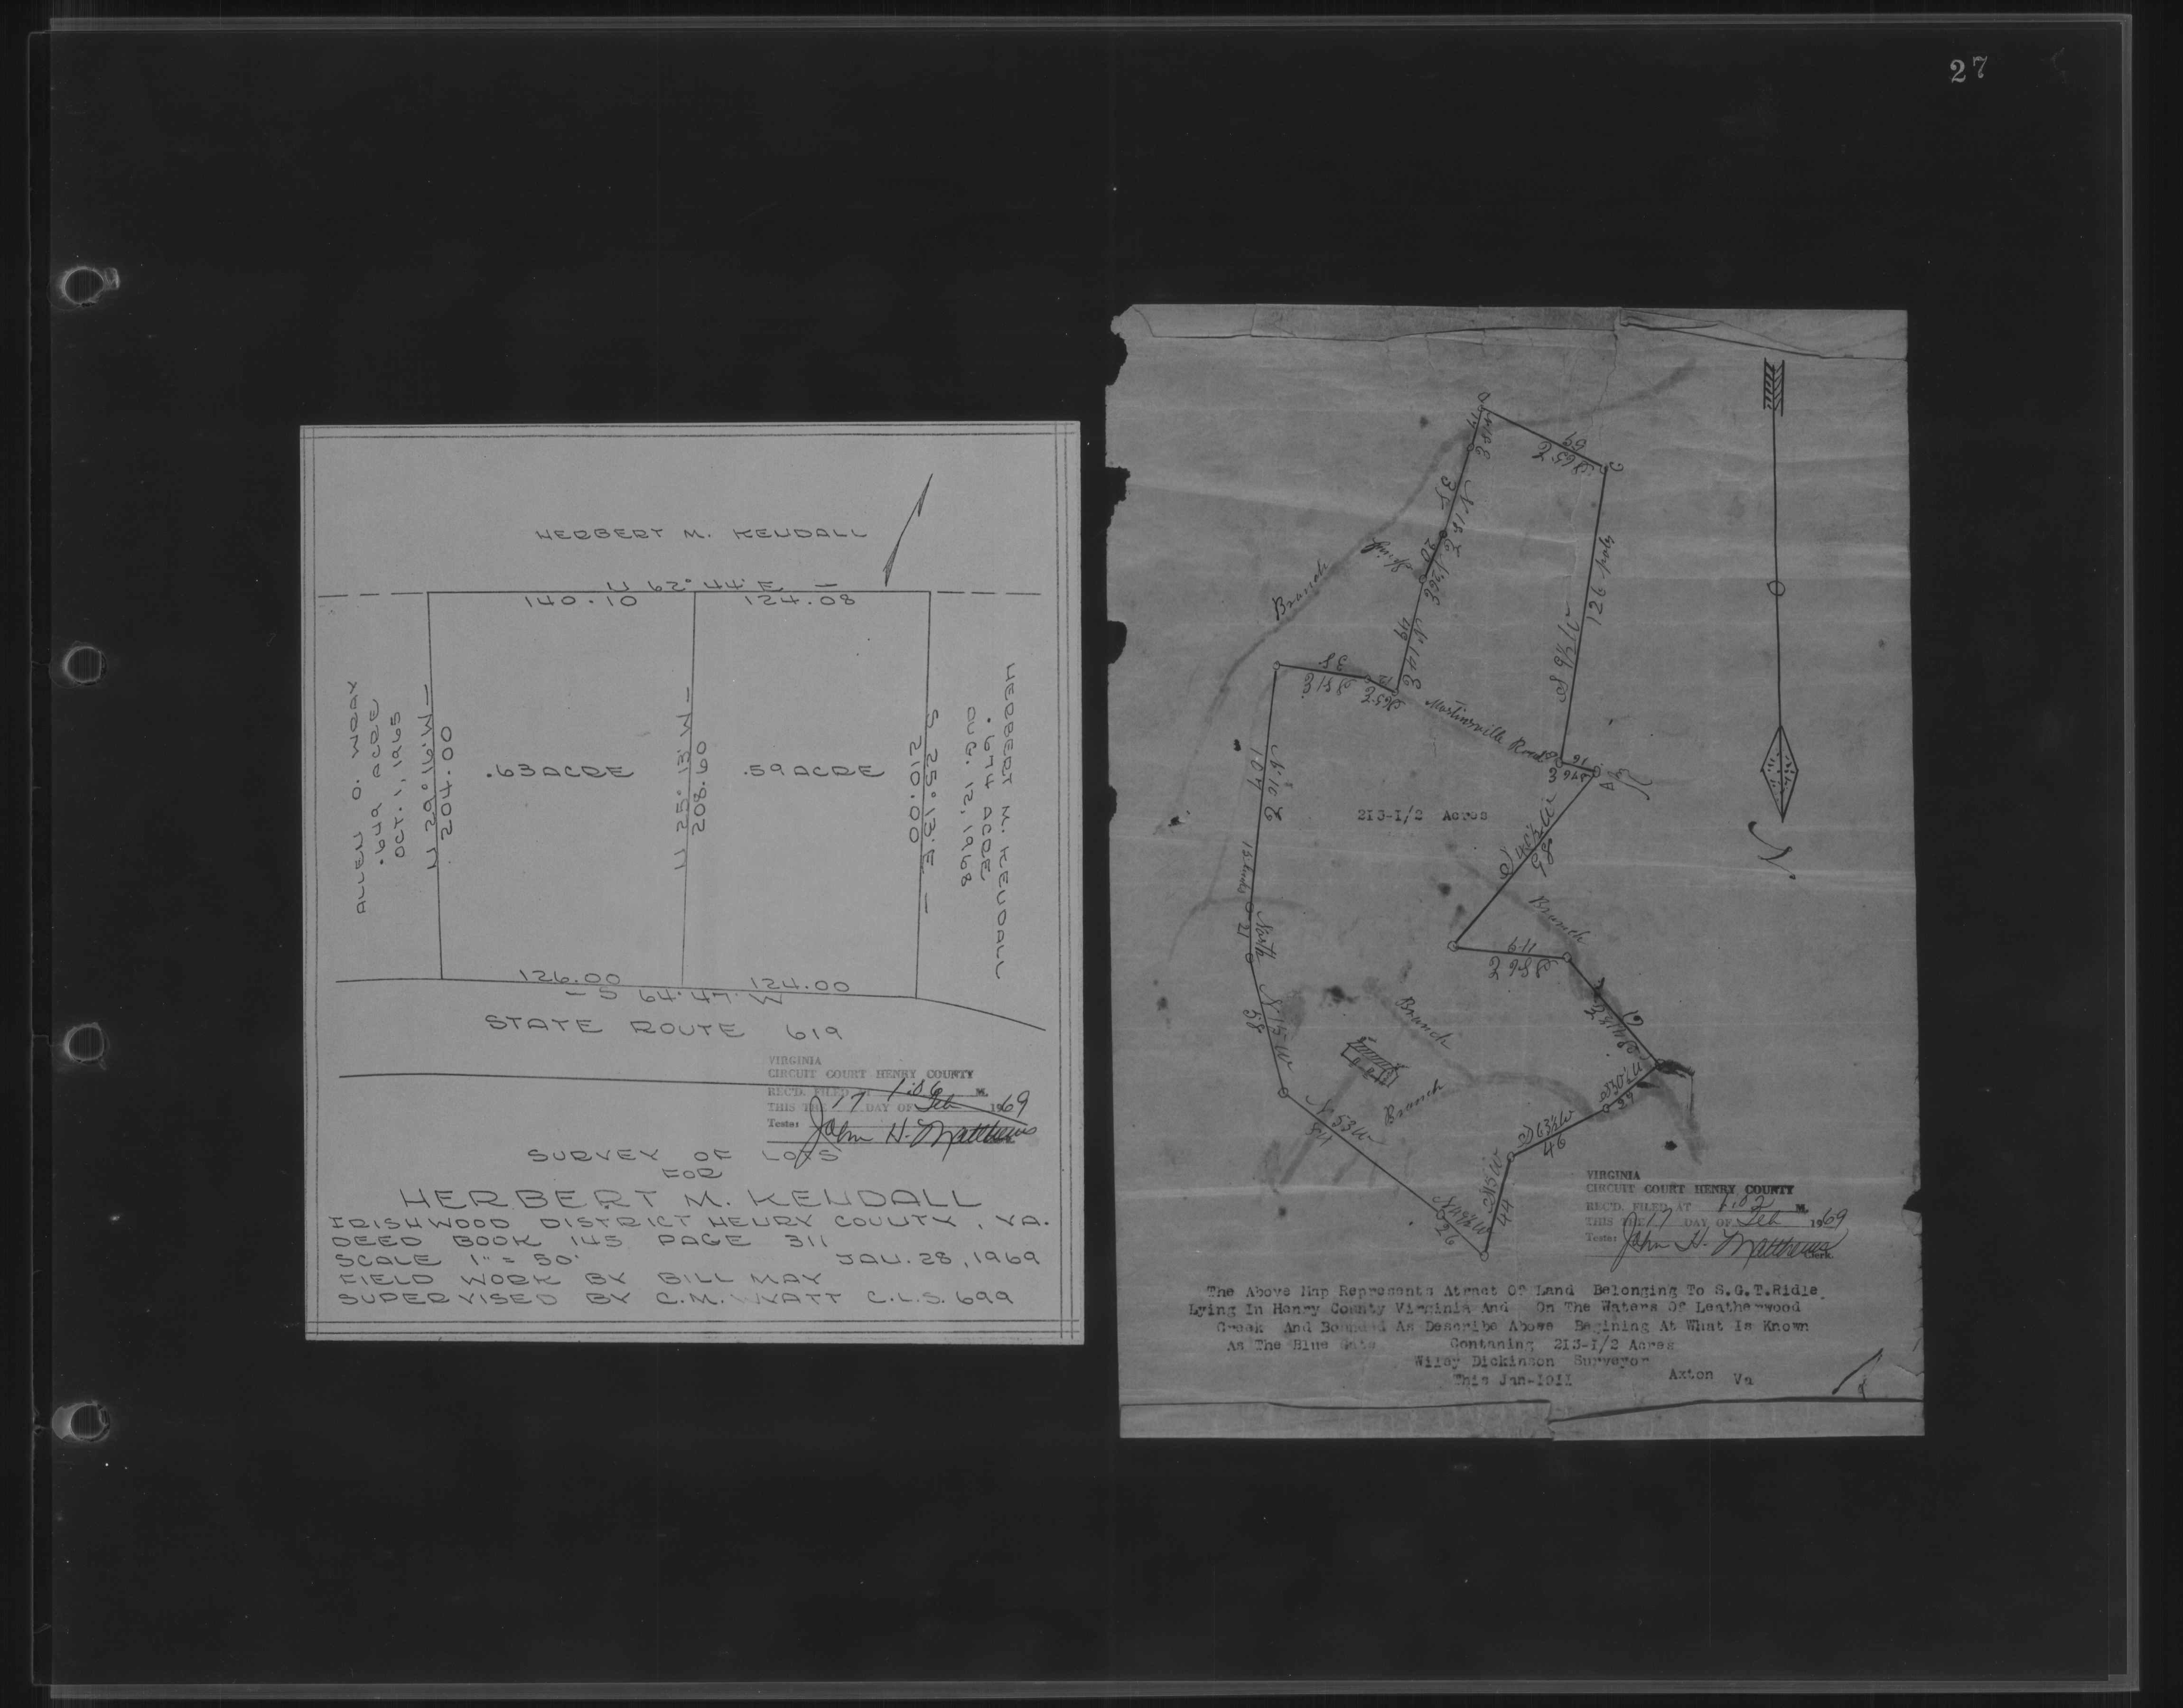 27
HERBERT M. KENDALL
N 62° 44' E
140.10 124.08
ALLEN O. WRAY
.649 ACRE
OCT. 1, 1965
N 29° 16' W
204.00
.63 ACRE
N 25° 13' W
208.60
.59 ACRE
S 25° 13' E
210.00
HERBERT M. KENDALL
.674 ACRE
AUG. 12, 1968
126.00 124.00
S 64° 47' W
STATE ROUTE 619
VIRGINIA
CIRCUIT COURT HENRY COUNTY
REC'D. FILED AT 1:06 M.
THIS THE 17 DAY OF Feb 1969
Teste: John H. Matthews
SURVEY OF LOTS
FOR
HERBERT M. KENDALL
IRISHWOOD DISTRICT HENRY COUNTY, VA.
DEED BOOK 145 PAGE 311
SCALE 1" = 50' JAN. 28, 1969
FIELD WORK BY BILL MAY
SUPERVISED BY C.M. WYATT C.L.S. 699
D
C
Branch
Spring
20
126 poly
S 9½ W
38
Martinsville Road
B
16
A
104
213-1/2 Acres
98
Branch
North
21
N 15 W
58
Branch
Branch
N 53 W
46
44
26
N
VIRGINIA
CIRCUIT COURT HENRY COUNTY
REC'D. FILED AT 1:02 M.
THIS THE 17 DAY OF Feb 1969
Teste: John H. Matthews
Clerk
The Above Map Represents Atract Of Land Belonging To S.G.T.Ridle
Lying In Henry County Virginia And On The Waters Of Leatherwood
Creek And Bounded As Describe Above Begining At What Is Known
As The Blue Gate Contaning 213-1/2 Acres
Wiley Dickinson Surveyor
This Jan-1911 Axton Va